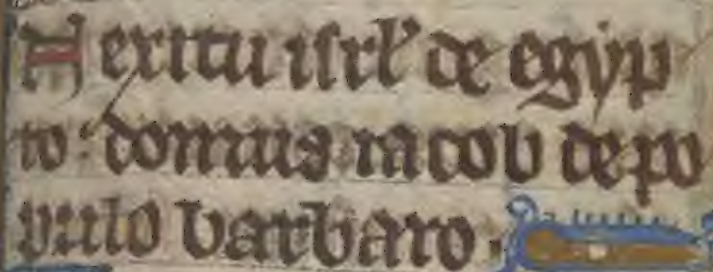 In exitu isrl' de egyp
to: domus iacob de po
pulo barbaro.